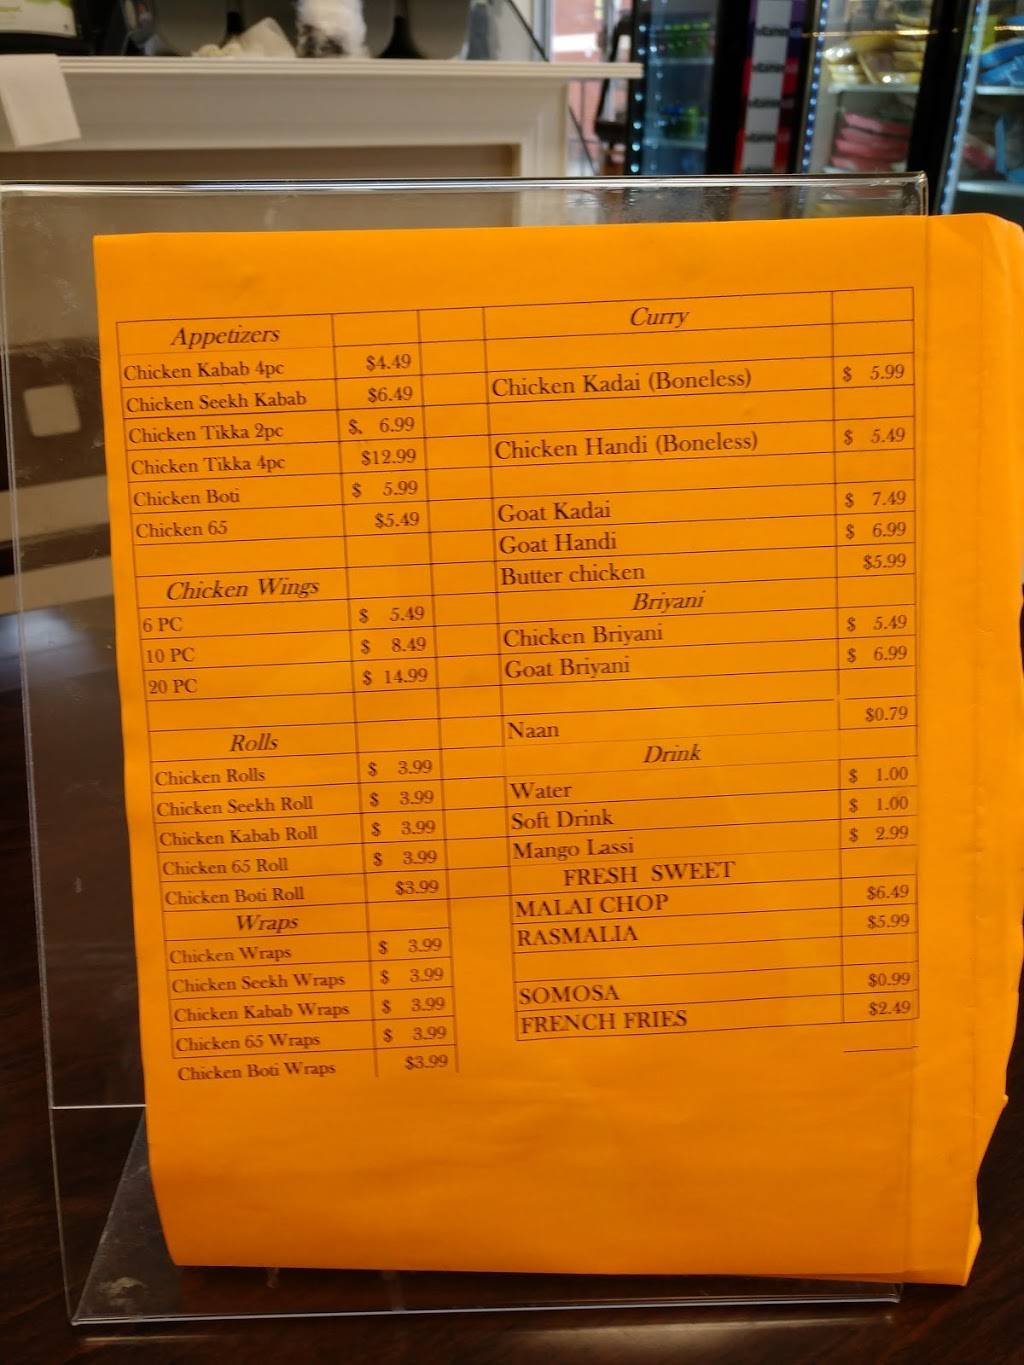 Appetizers
Chicken Kabab 4pc $4.49
Chicken Seekh Kabab $6.49
Chicken Tikka 2pc $. 6.99
Chicken Tikka 4pc $12.99
Chicken Boti $ 5.99
Chicken 65 $5.49
Chicken Wings
6 PC $ 5.49
10 PC $ 8.49
20 PC $ 14.99
Rolls
Chicken Rolls $ 3.99
Chicken Seekh Roll $ 3.99
Chicken Kabab Roll $ 3.99
Chicken 65 Roll $ 3.99
Chicken Boti Roll $3.99
Wraps
Chicken Wraps $ 3.99
Chicken Seekh Wraps $ 3.99
Chicken Kabab Wraps $ 3.99
Chicken 65 Wraps $ 3.99
Chicken Boti Wraps $3.99
Curry
Chicken Kadai (Boneless) $ 5.99
Chicken Handi (Boneless) $ 5.49
Goat Kadai $ 7.49
Goat Handi $ 6.99
Butter chicken $5.99
Briyani
Chicken Briyani $ 5.49
Goat Briyani $ 6.99
Naan $0.79
Drink
Water $ 1.00
Soft Drink $ 1.00
Mango Lassi $ 2.99
FRESH SWEET
MALAI CHOP $6.49
RASMALIA $5.99
SOMOSA $0.99
FRENCH FRIES $2.49